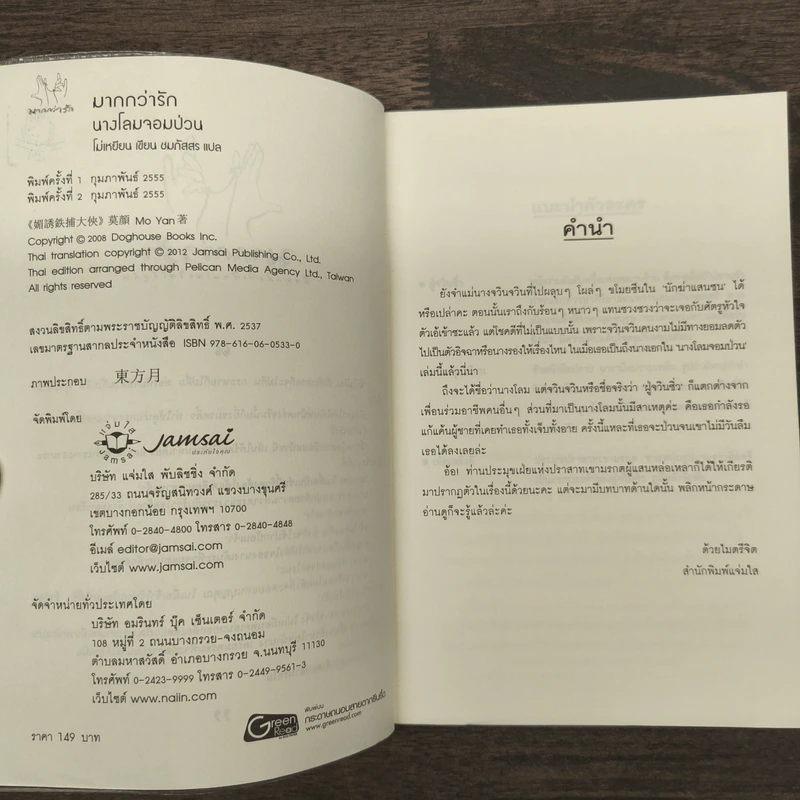 มากกว่ารัก
มากกว่ารัก
นางโลมจอมป่วน
โม่เหยียน เขียน ชมภัสสร แปล
พิมพ์ครั้งที่ 1 กุมภาพันธ์ 2555
พิมพ์ครั้งที่ 2 กุมภาพันธ์ 2555
《媚誘鉄捕大俠》莫顏 Mo Yan 著
Copyright © 2008 Doghouse Books Inc.
Thai translation copyright © 2012 Jamsai Publishing Co., Ltd.
Thai edition arranged through Pelican Media Agency Ltd., Taiwan
All rights reserved
สงวนลิขสิทธิ์ตามพระราชบัญญัติลิขสิทธิ์ พ.ศ. 2537
เลขมาตรฐานสากลประจำหนังสือ ISBN 978-616-06-0533-0
ภาพประกอบ 東方月
จัดพิมพ์โดย
แจ่มใส
Jamsai
Jamsai
ประทับใจคุณ
บริษัท แจ่มใส พับลิชชิ่ง จำกัด
285/33 ถนนจรัญสนิทวงศ์ แขวงบางขุนศรี
เขตบางกอกน้อย กรุงเทพฯ 10700
โทรศัพท์ 0-2840-4800 โทรสาร 0-2840-4848
อีเมล์ editor@jamsai.com
เว็บไซต์ www.jamsai.com
จัดจำหน่ายทั่วประเทศโดย
บริษัท อมรินทร์ บุ๊ค เซ็นเตอร์ จำกัด
108 หมู่ที่ 2 ถนนบางกรวย-จงถนอม
ตำบลมหาสวัสดิ์ อำเภอบางกรวย จ.นนทบุรี 11130
โทรศัพท์ 0-2423-9999 โทรสาร 0-2449-9561-3
เว็บไซต์ www.naiin.com
ราคา 149 บาท
Green Read
พิมพ์บน
กระดาษถนอมสายตากรีนรี้ด
www.greenread.com
คำนำ
ยังจำแม่นางจวินจวินที่ไปผลุบๆ โผล่ๆ ขโมยซีนใน 'นักฆ่าแสนซน' ได้
หรือเปล่าคะ ตอนนั้นเราถึงกับร้อนๆ หนาวๆ แทนซวงซวงว่าจะเจอกับศัตรูหัวใจ
ตัวเอ้เข้าซะแล้ว แต่โชคดีที่ไม่เป็นแบบนั้น เพราะจวินจวินคนงามไม่มีทางยอมลดตัว
ไปเป็นตัวอิจฉาหรือนางรองให้เรื่องไหน ในเมื่อเธอเป็นถึงนางเอกใน 'นางโลมจอมป่วน'
เล่มนี้แล้วนี่นา
ถึงจะได้ชื่อว่านางโลม แต่จวินจวินหรือชื่อจริงว่า 'ฝู่จวินซิ่ว' ก็แตกต่างจาก
เพื่อนร่วมอาชีพคนอื่นๆ ส่วนที่มาเป็นนางโลมนั้นมีสาเหตุค่ะ คือเธอกำลังรอ
แก้แค้นผู้ชายที่เคยทำเธอทั้งเจ็บทั้งอาย ครั้งนี้แหละที่เธอจะป่วนจนเขาไม่มีวันลืม
เธอได้ลงเลยล่ะ
อ้อ! ท่านประมุขเฝ่ยแห่งปราสาทเขามรกตผู้แสนหล่อเหลาก็ได้ให้เกียรติ
มาปรากฏตัวในเรื่องนี้ด้วยนะคะ แต่จะมามีบทบาทด้านใดนั้น พลิกหน้ากระดาษ
อ่านดูก็จะรู้แล้วล่ะค่ะ
ด้วยไมตรีจิต
สำนักพิมพ์แจ่มใส